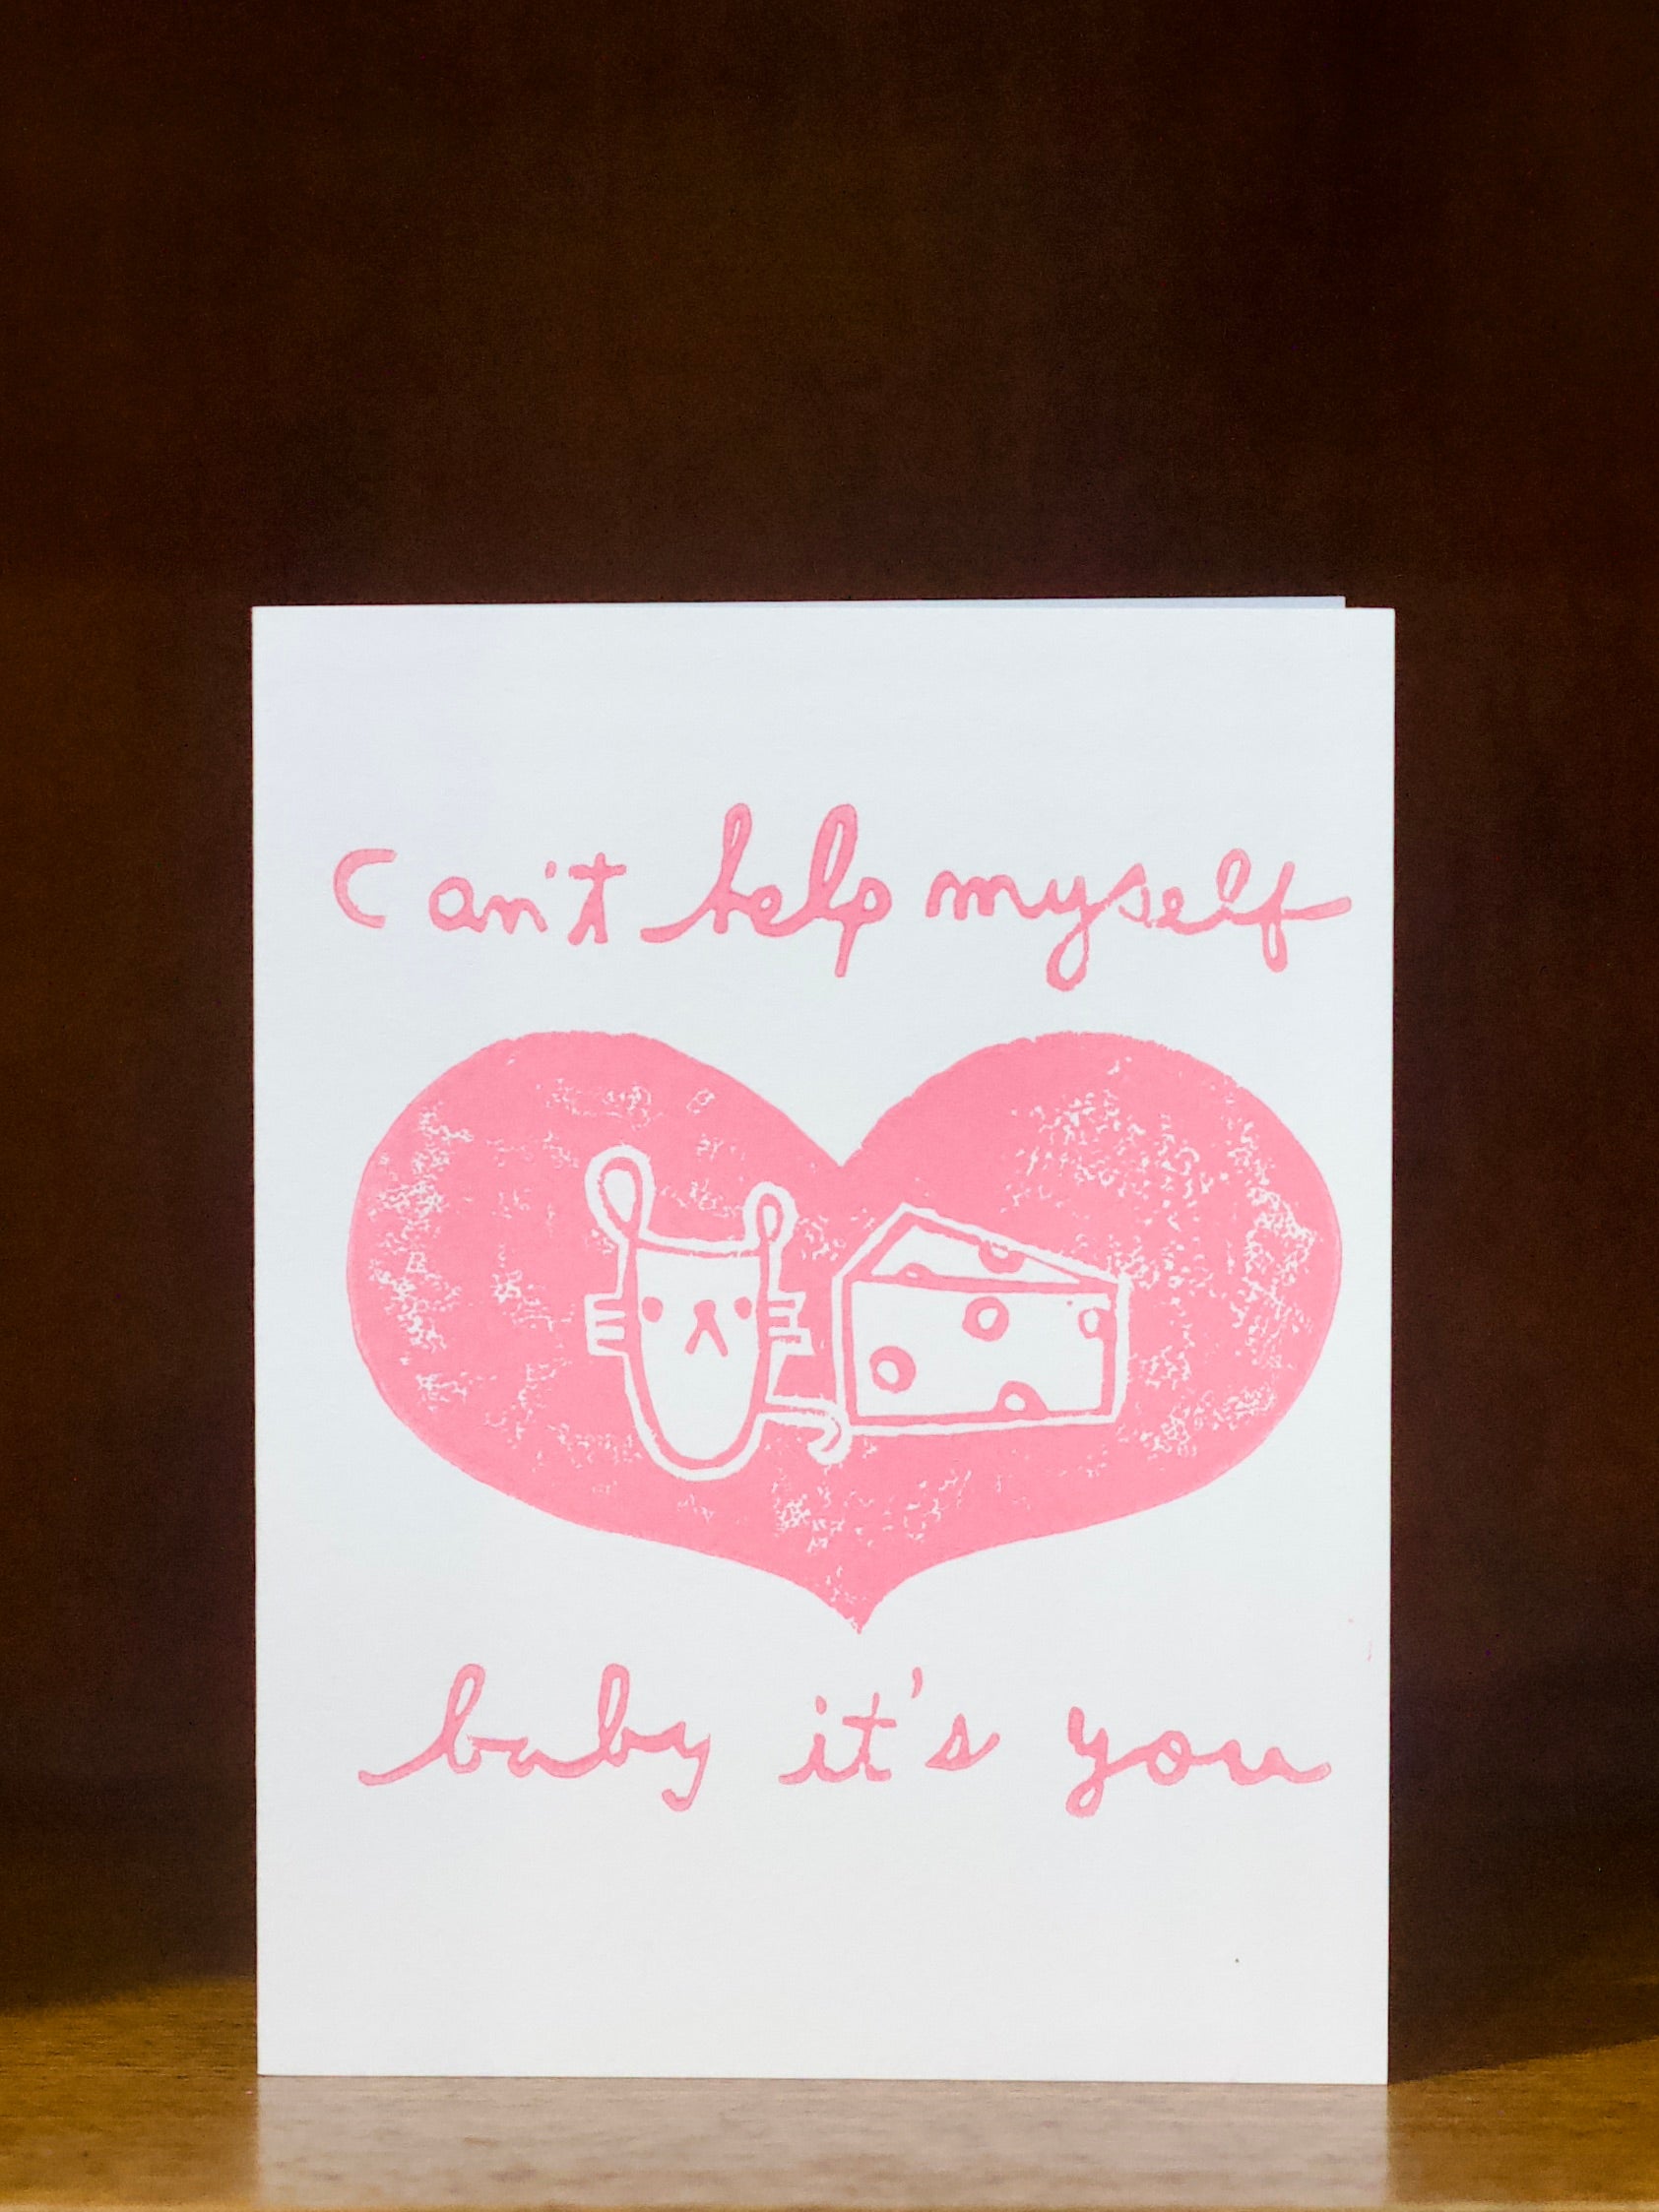 Can't help myself
baby it's you